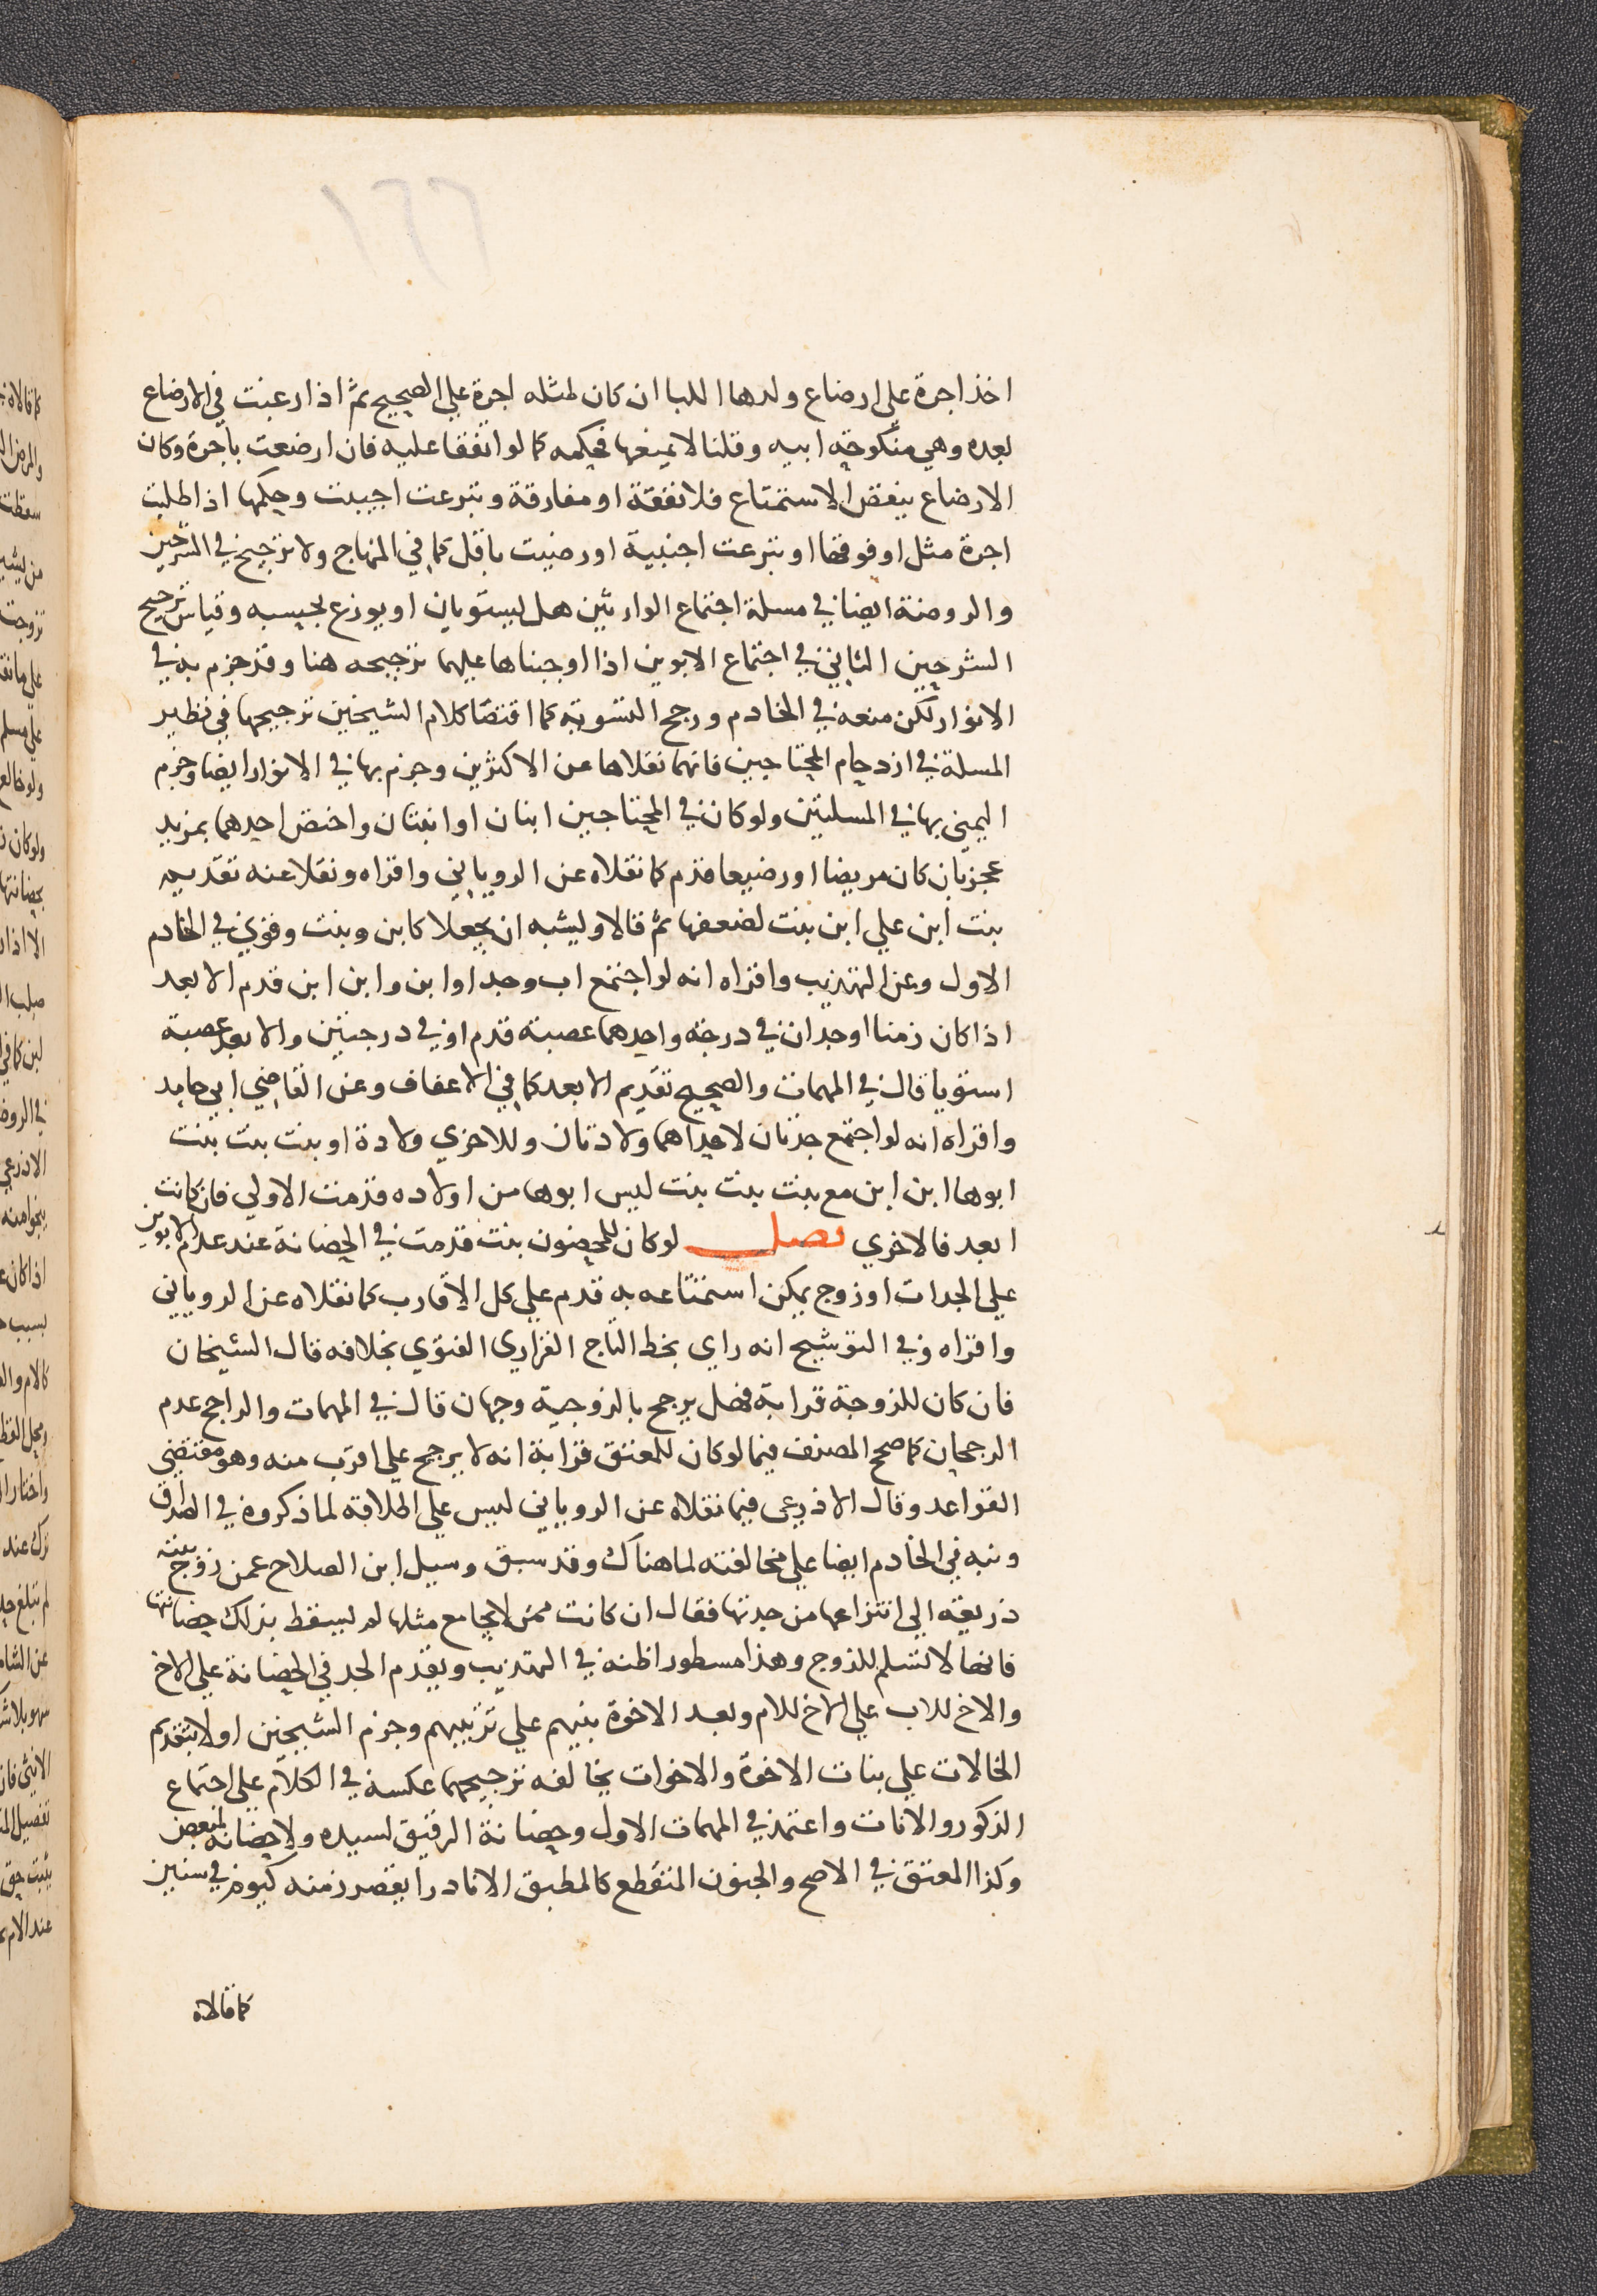 ١٢٦
اخذ اجرة علي ارضاع ولدها اللبا ان كان لمثله اجرة علي الصحيح ثم اذا رغبت في الارضاع
بعده وهي منكوحة ابيه وقلنا لا يمنعها فحكمه كما لو اتفقا عليه فان ارضعت باجرة وكان
الارضاع ينقض الاستمتاع فلا نفقة او مفارقة وتبرعت اجيبت وحكمها اذا طلبت
اجرة مثل او فوقها او تبرعت اجنبية او رضيت باقل كما في المنهاج ولا ترجيح في الشرحين
والروضة ايضا في مسلة اجتماع الوارثين هل يستويان او يوزع بحسبه وقياس ترجيح
الشرحين الثاني في اجتماع الابوين اذا اوجبناها عليهما ترجيحه هنا وقد جزم به في
الانوار لكن منعه في الخادم ورجح التسوية كما اقتضا كلام الشيخين ترجيحها في نظير
المسلة في ازدحام المحتاجين فانهما نقلاها عن الاكثرين وجزم بها في الانوار ايضا وجزم
اليمني بها في المسلتين ولو كان في المحتاجين ابنان او ابنتان واختص احدهما بمزيد
عجز بان كان مريضا او رضيعا قدم كما نقلاه عن الروياني واقراه ونقلا عنه تقديم
بنت ابن علي ابن بنت لضعفها ثم قالا ويشبه ان يجعلا كابن وبنت وقوي في الخادم
الاول وعن التهذيب واقراه انه لو اجتمع اب وجد او ابن وابن ابن قدم الابعد
اذا كان زمنا او جدان في درجة واحدهما عصبة قدم او في درجتين والابعد عصبة
استويا قال في المهمات والصحيح تقديم الابعد كما في الاعفاف وعن القاضي ابي حامد
واقراه انه لو اجتمع جدتان لاحداهما ولادتان وللاخري ولادة او بنت بنت بنت
ابوها ابن ابن مع بنت بنت بنت ليس ابوها من اولاده قدمت الاولي فان كانت
ابعد فالاخري فصل لو كان للمحضون بنت قدمت في الحضانة عند عدم الابوين
علي الجدات او زوج يمكن استمتاعه به قدم علي كل الاقارب كما نقلاه عن الروياني
واقراه وفي التوشيح انه راي بخط التاج الفزاري الفتوي بخلافه قال الشيخان
فان كان للزوجة قرابة فهل يرجح بالزوجية وجهان قال في المهمات والراجح عدم
الرجحان كما صحح المصنف فيما لو كان للمعتق قرابة انه لا يرجح علي اقرب منه وهو مقتضي
القواعد وقال الاذرعي فيما نقلاه عن الروياني ليس علي اطلاقه لما ذكروه في الصداق
ونبه في الخادم ايضا علي مخالفته لما هناك وقد سبق وسيل ابن الصلاح عمن زوج بنته
ذريعة الي انتزاعها من جدتها فقال ان كانت ممن لا يجامع مثلها لم يسقط بذلك حضانتها
فانها لا تسلم للزوج وهذا مسطور اظنه في التهذيب ويقدم الجد في الحضانة علي الاخ
والاخ للاب علي الاخ للام وبعد الاخوة بنيهم علي ترتيبهم وجزم الشيخين اولا بتقديم
الخالات علي بنات الاخوة والاخوات يخالفه ترجيحهما عكسه في الكلام علي اجتماع
الذكور والاناث واعتمد في المهمات الاول وحضانة الرقيق لسيده ولا حضانة لمبعض
وكذا المعتق في الاصح والجنون المتقطع كالمطبق الا نادرا يقصر زمنه كيوم في سنين
كما قالاه